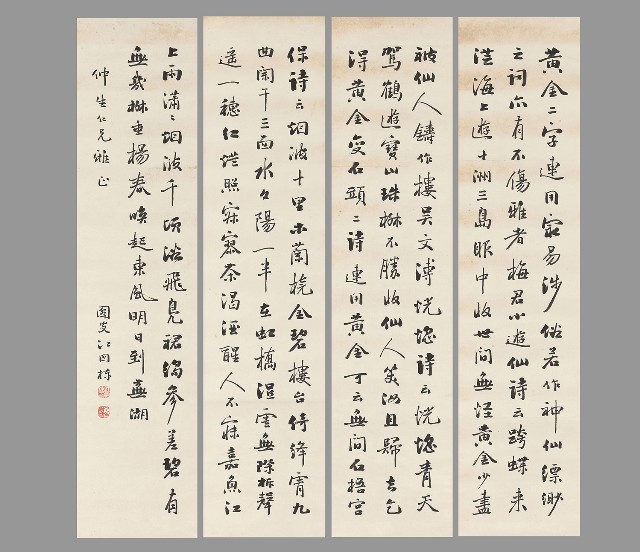 黄金二字連用最易涉俗若作神仙縹緲
之詞亦有不傷雅者梅君小遊仙詩云跨蝶来
海上遊十洲三島眼中收世间無怪黄金少盡
被仙人鑄作樓吴文溥恍惚詩云恍惚青天
駕鶴遊寶山珠樹不勝收仙人笑汝且歸去乞
得黄金變石頭二詩連用黄金可云無间石梧宫
保詩云烟波十里木蘭橈金碧樓台倚绛霄九
曲闌干三面水夕陽一半在虹橋湿雲無際柝聲
遥一穗红燈照寂寥茶渴酒醒人不寐嘉魚江
上雨瀟〻烟波千頃浴飛凫裙褶参差碧有
無幾樹垂楊春喚起東風明日到蕪湖
仲生仁兄雅正
江国栋